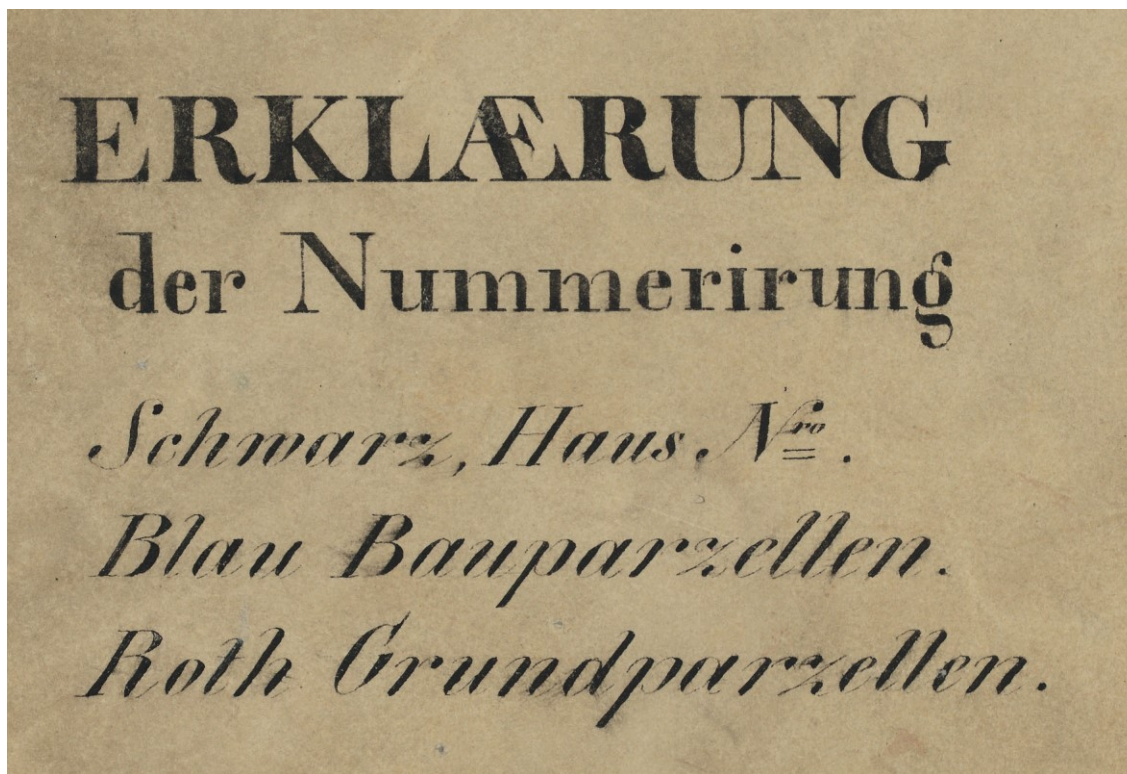 ERKLÆRUNG
der Nummerirung
Schwarz, Haus Nro.
Blau Bauparzellen.
Roth Grundparzellen.